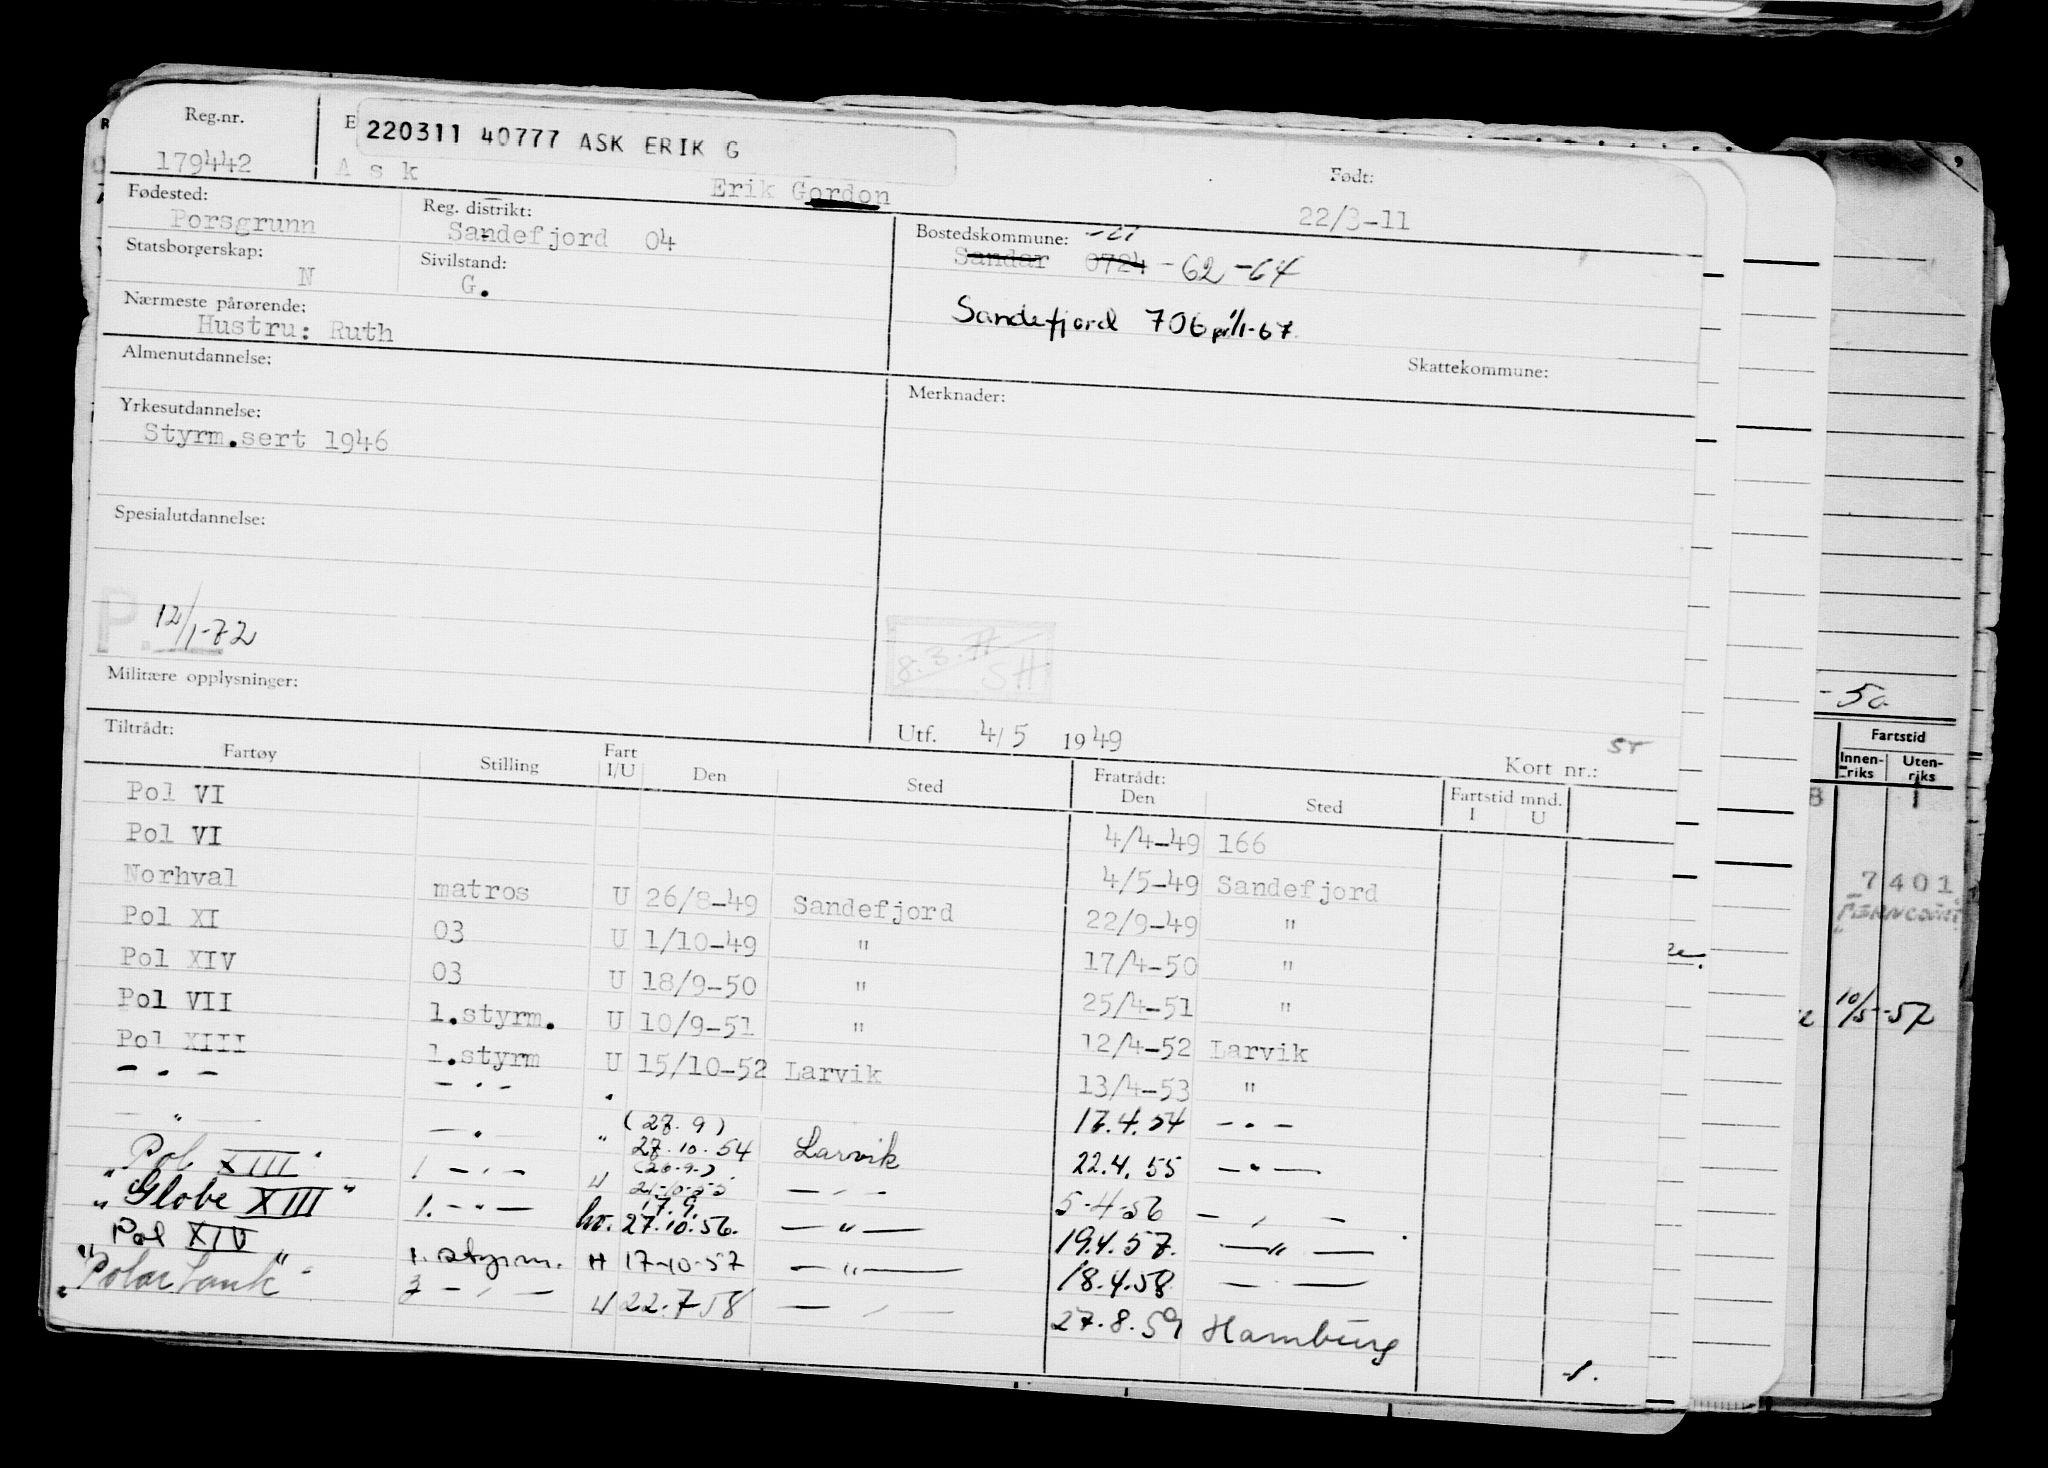 Reg.nr.
E
220311 40777 ASK ERIK G
179442 Ask Erik Gordon
Født:
22/3-11
Fødested:
Porsgrunn
Reg. distrikt:
Sandefjord 04
Bostedskommune:
Sandar 0724 -62 -64
Statsborgerskap:
N
Sivilstand:
G.
Sandefjord 706 pr 1/1-67.
Nærmeste pårørende:
Hustru: Ruth
Skattekommune:
Almenutdannelse:
Merknader:
Yrkesutdannelse:
Styrm.sert 1946
Spesialutdannelse:
P. 12/1-72
8.3.71 SH.
Militære opplysninger:
Utf. 4/5 1949
Kort nr.:
Tiltrådt:
Fartøy Stilling Fart I/U Den Sted Fratrådt: Den Sted Fartstid mnd. I U
Pol VI 4/4-49 166
Pol VI 4/5-49 Sandefjord
Norhval matros U 26/8-49 Sandefjord 22/9-49 "
Pol XI 03 U 1/10-49 " 17/4-50 "
Pol XIV 03 U 18/9-50 " 25/4-51 "
Pol VII 1.styrm. U 10/9-51 " 12/4-52 Larvik
Pol XIII 1.styrm U 15/10-52 Larvik 13/4-53 "
- " - - " - 17.4.54 - " -
- " - - " - " (27.9) 27.10.54 Larvik 22.4.55 - " -
Pol XIII 1 - " - (20.9.) 21-10-55 - " - 5-4-56 - " -
"Globe XIII" 1. - " - hv. 17.9. 27.10.56. - " - 19.4.57. - " -
Pol XIV 1. styrm. H 17-10-57 - " - 18.4.58 - " -
"Polartank" 2 - " - U 22.7.58 - " - 27.8.59 Hamburg
-50
Fartstid
Innen-riks Uten-riks
7401
10/5-57